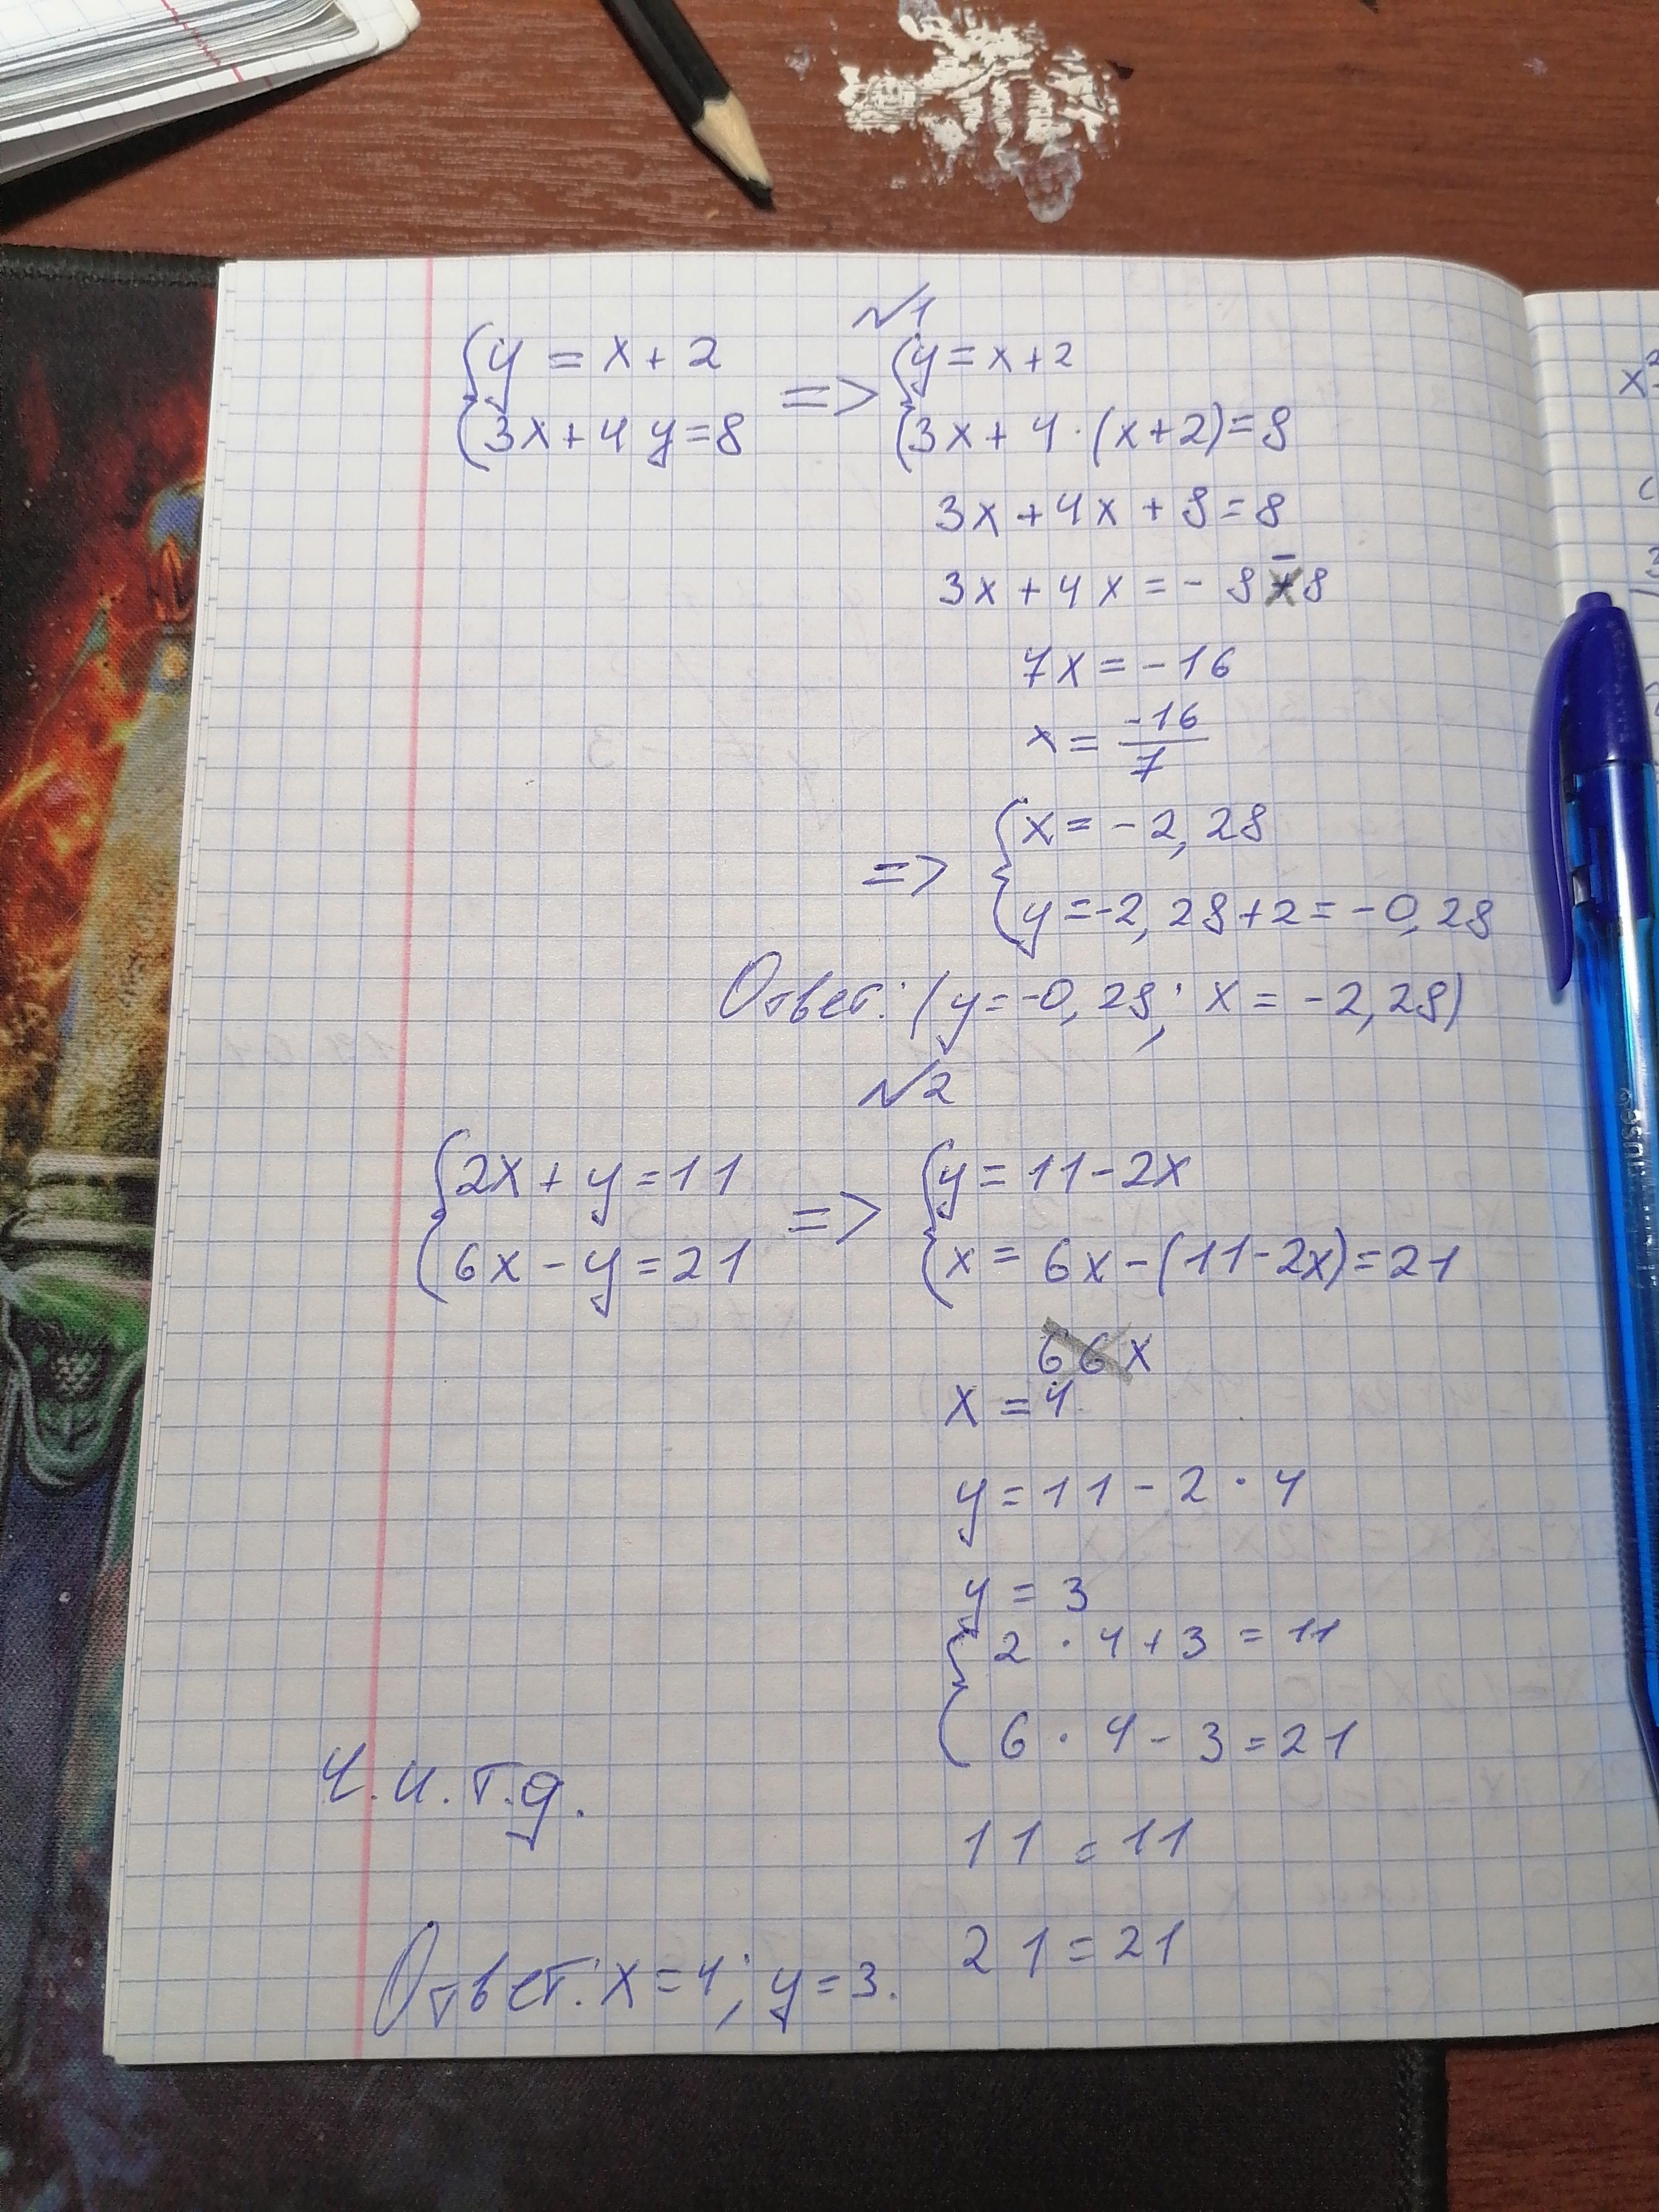 №1
{y = x + 2 => {y = x + 2
{3x + 4y = 8 {3x + 4 · (x + 2) = 8
3x + 4x + 8 = 8
3x + 4x = - 8 - 8
7x = -16
x = -16/7
=> {x = -2,28
{y = -2,28 + 2 = -0,28
Ответ: (y = -0,28; x = -2,28)
№2
{2x + y = 11 => {y = 11 - 2x
{6x - y = 21 {x = 6x - (11 - 2x) = 21
66x
x = 4
y = 11 - 2 · 4
y = 3
{2 · 4 + 3 = 11
{6 · 4 - 3 = 21
Ч.и.т.д.
11 = 11
21 = 21
Ответ: x = 4; y = 3.